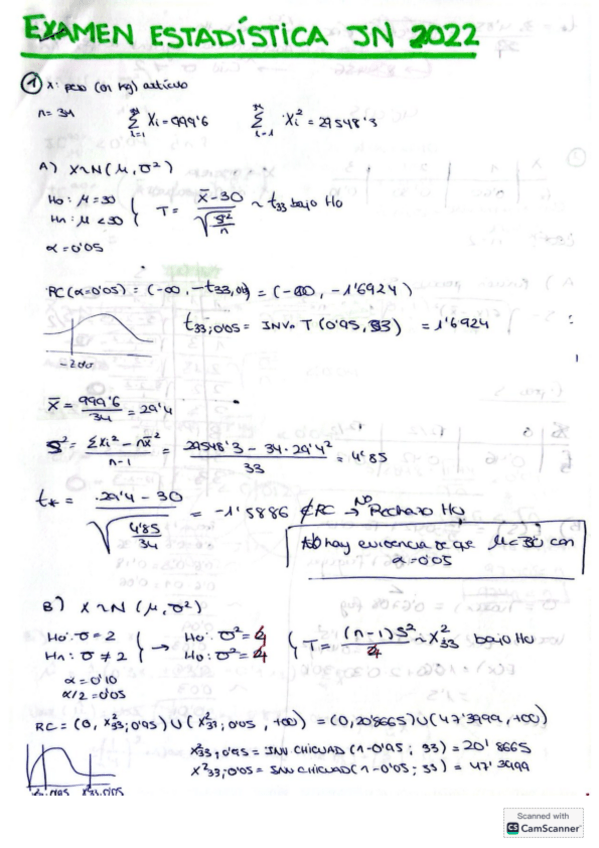 EXAMEN ESTADÍSTICA JN 2022
① X: peso (en kg) artículo
n=34 n∑i=1 Xi=999'6 n∑i=1 Xi²=29548'3
A) X~N(μ,σ²)
H0: μ=30
H1: μ<30 } T= (x̄-30)/√(S²/n) ~ t33 bajo H0
α=0'05
RC(α=0'05) = (-∞, -t33,0'05) = (-∞, -1'6924)
t33;0'05 = INV. T (0'95, 33) = 1'6924
x̄ = 999'6/34 = 29'4
S² = (∑xi² - nx̄²)/(n-1) = (29548'3 - 34·29'4²)/33 = 4'85
t* = (29'4 - 30)/√(4'85/34) = -1'5886 ∉ RC → NO Rechazo H0
No hay evidencia de que μ<30 con
α=0'05
B) X~N(μ,σ²)
H0: σ=2
H1: σ≠2 } → H0: σ²=4
H0: σ²=4 { T= (n-1)S²/4 ~ X²33 bajo H0
α=0'10
α/2=0'05
RC = (0, X²33;0'95) ∪ (X²33;0'05, +∞) = (0, 20'8665) ∪ (47'3999, +∞)
X²33;0'95 = INV CHICUAD (1-0'95; 33) = 20'8665
X²33;0'05 = INV CHICUAD (1-0'05; 33) = 47'3999
Scanned with
CS CamScanner